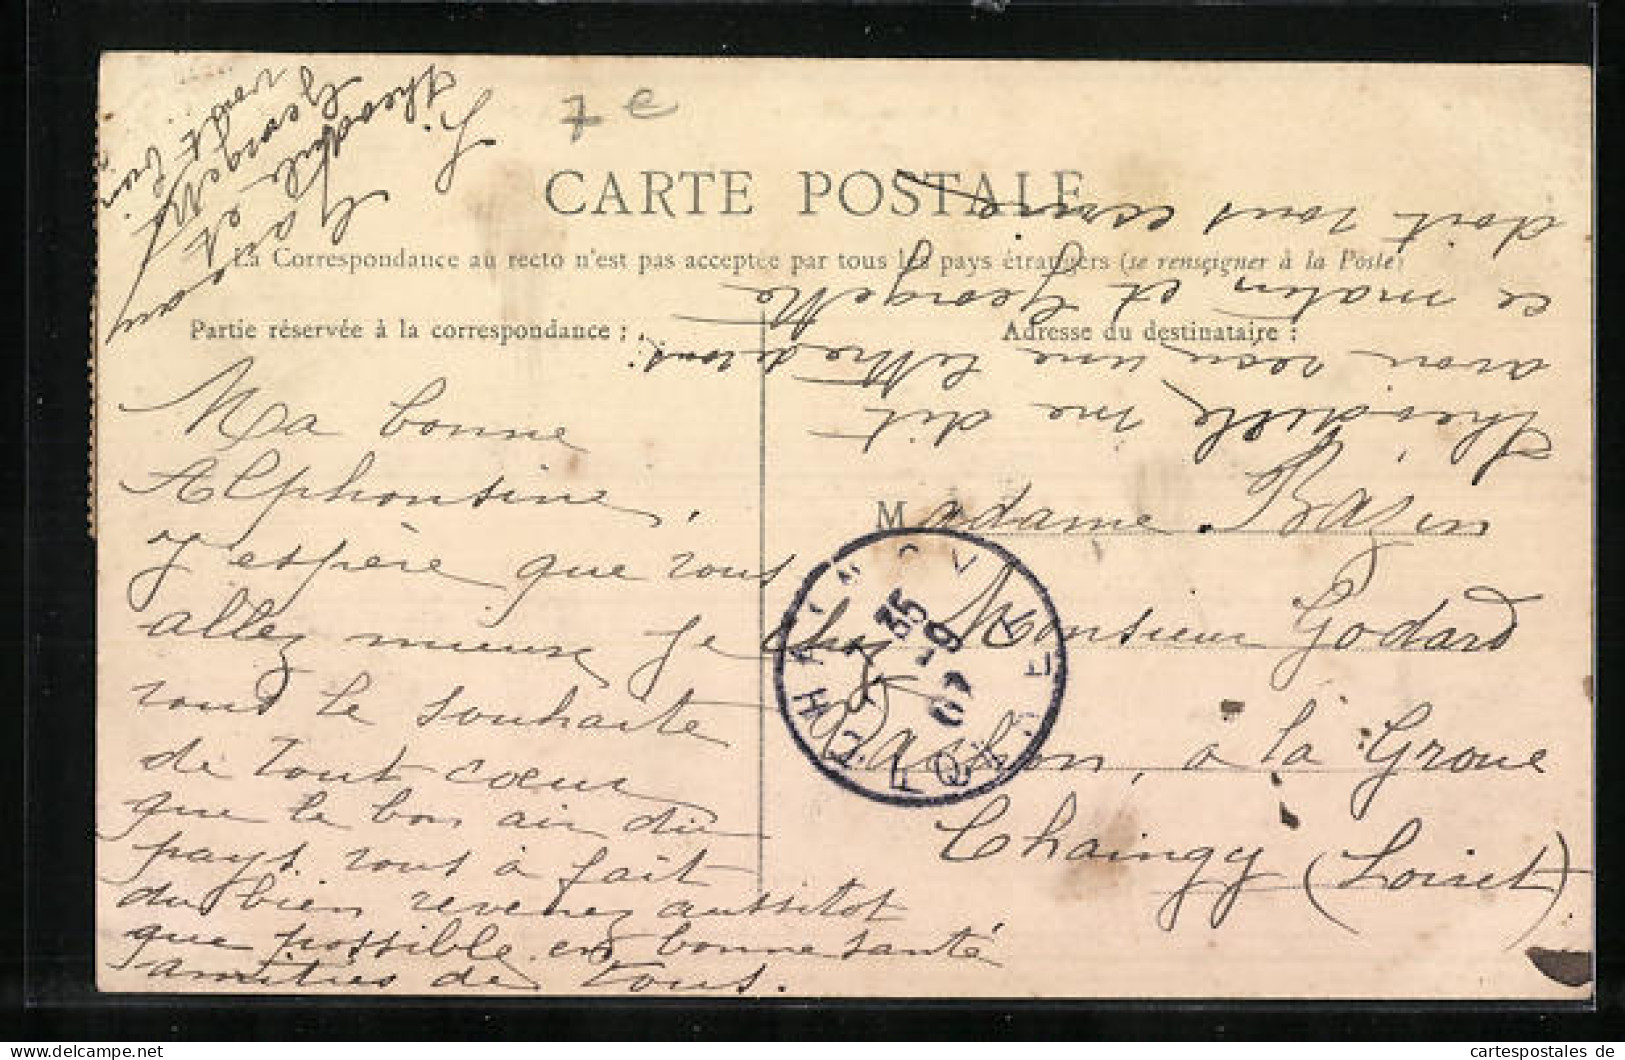 7 e
CARTE POSTALE
La Correspondance au recto n'est pas acceptée par tous les pays étrangers (se renseigner à la Poste)
Partie réservée à la correspondance :
Adresse du destinataire :
Ma bonne
Alphonsine,
J'espère que vous
allez mieux je
vous le souhaite
de tout cœur
que le bon air du
pays vous à fait
du bien revenez aussitot
que possible en bonne santé
amitiés de tous.
Madame Bazin
chez Monsieur Godard
à la Groue
Chaingy (Loiret)
Théodule me dit
avoir reçu une lettre de vous
ce matin et Georgette
doit vous écrire
Si Théodule
Georgette
vont
35
-9
07
cartespostales de